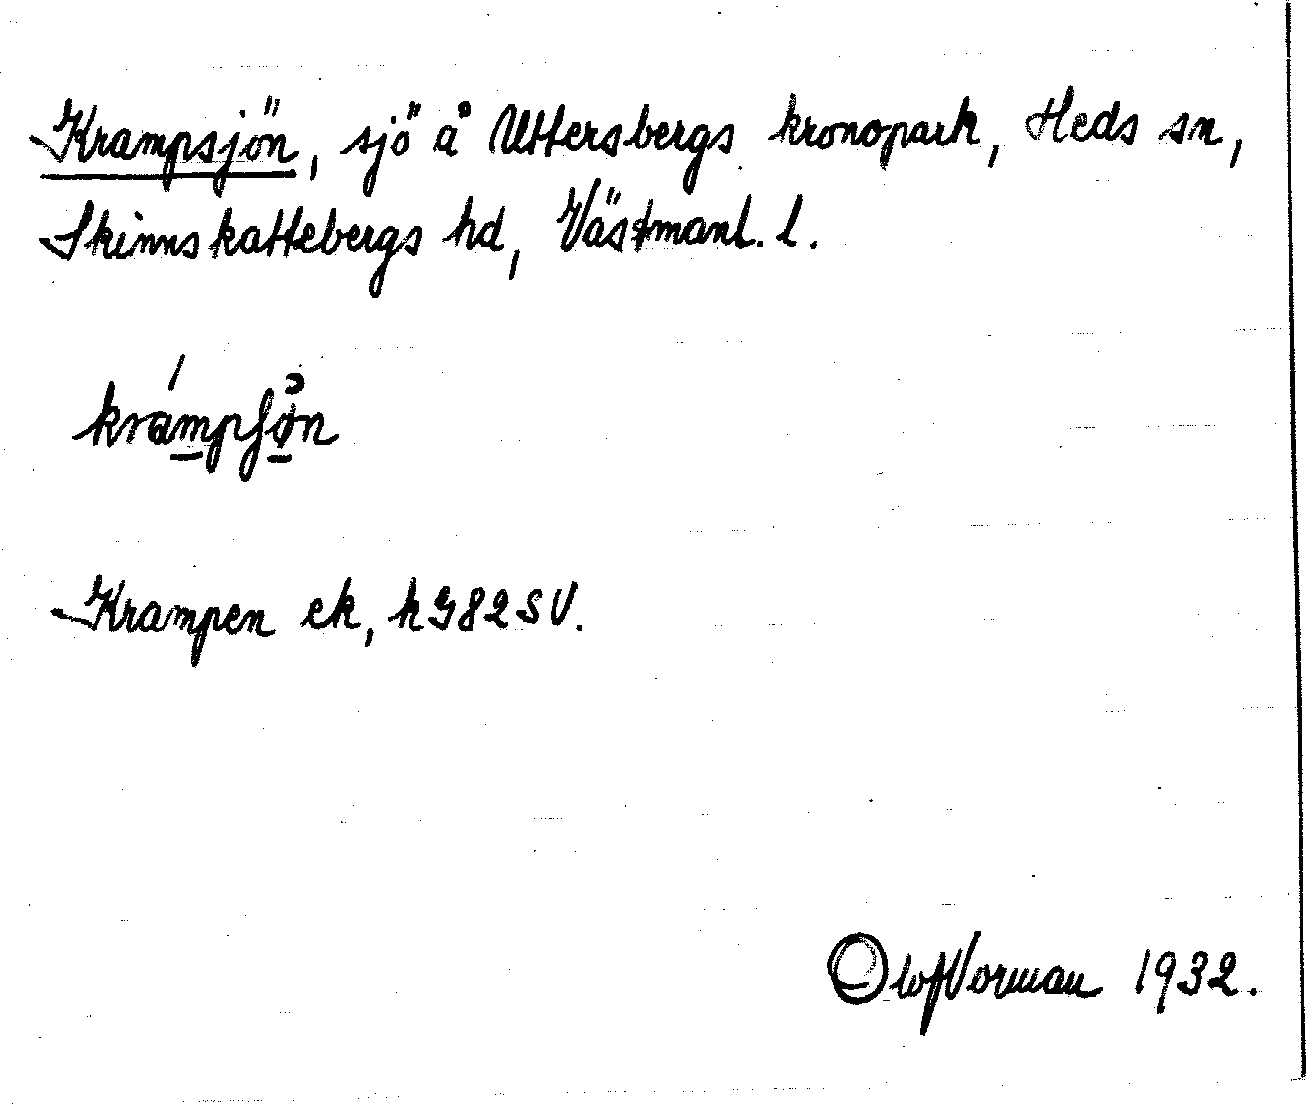 Krampsjön, sjö å Uttersbergs kronopark, Heds sn,
Skinnskattebergs hd, Västmanl. l.
Krampen ek, kG82SV.
Olof Norman 1932.